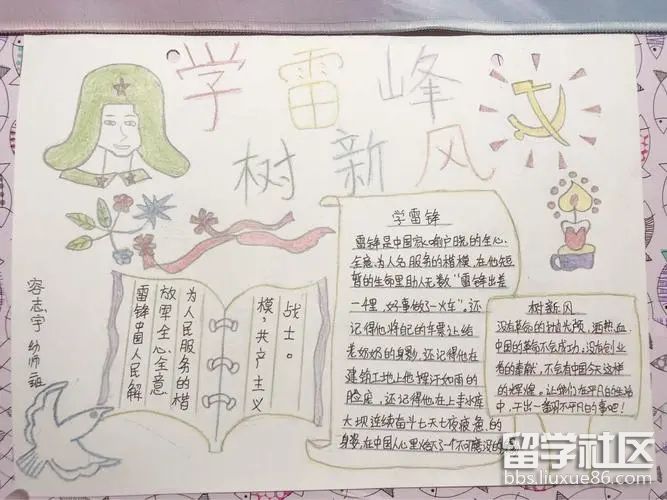 学雷峰
树新风
学雷锋
雷锋是中国家喻户晓的全心
全意为人名服务的楷模,在他短
暂的生命里助人无数"雷锋出差
一程,好事做了一火车",还
记得他将自己的车票让给
老奶奶的身影,还记得他在
建筑工地上他挥汗如雨的
脸庞,还记得他在上寺水库
大坝连续奋斗七天七夜疲惫的
身姿,在中国人心里烙下了一个不可磨灭的
雷锋中国人民解
放军全心全意
为人民服务的楷
模,共产主义
战士。
树新风
没有革命的抛头颅,洒热血,
中国的革命不会成功;没有创业
者的奉献,不会有中国今天这样
的辉煌。让我们在平凡的生活
中,干出一番不平凡的事吧!
容志宇 幼师
留学社区
bbs.liuxue86.com